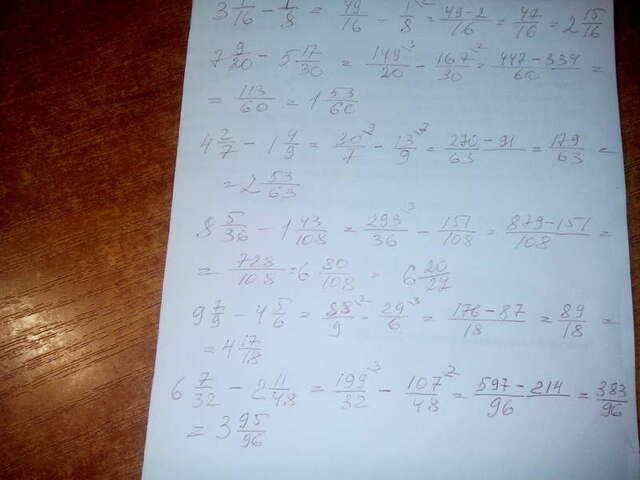 3 1/16 - 1/8 = 49/16 - 1/8 ² = 49-2/16 = 47/16 = 2 15/16
7 9/20 - 5 17/30 = 149/20 ³ - 167/30 ² = 447-334/60 =
= 113/60 = 1 53/60
4 2/7 - 1 4/9 = 30/7 ⁹ - 13/9 ⁷ = 270-91/63 = 179/63 =
= 2 53/63
8 5/36 - 1 43/108 = 293/36 ³ - 151/108 = 879-151/108 =
= 728/108 = 6 80/108 = 6 20/27
9 7/9 - 4 5/6 = 88/9 ² - 29/6 ³ = 176-87/18 = 89/18 =
= 4 17/18
6 7/32 - 2 11/48 = 199/32 ³ - 107/48 ² = 597-214/96 = 383/96
= 3 95/96